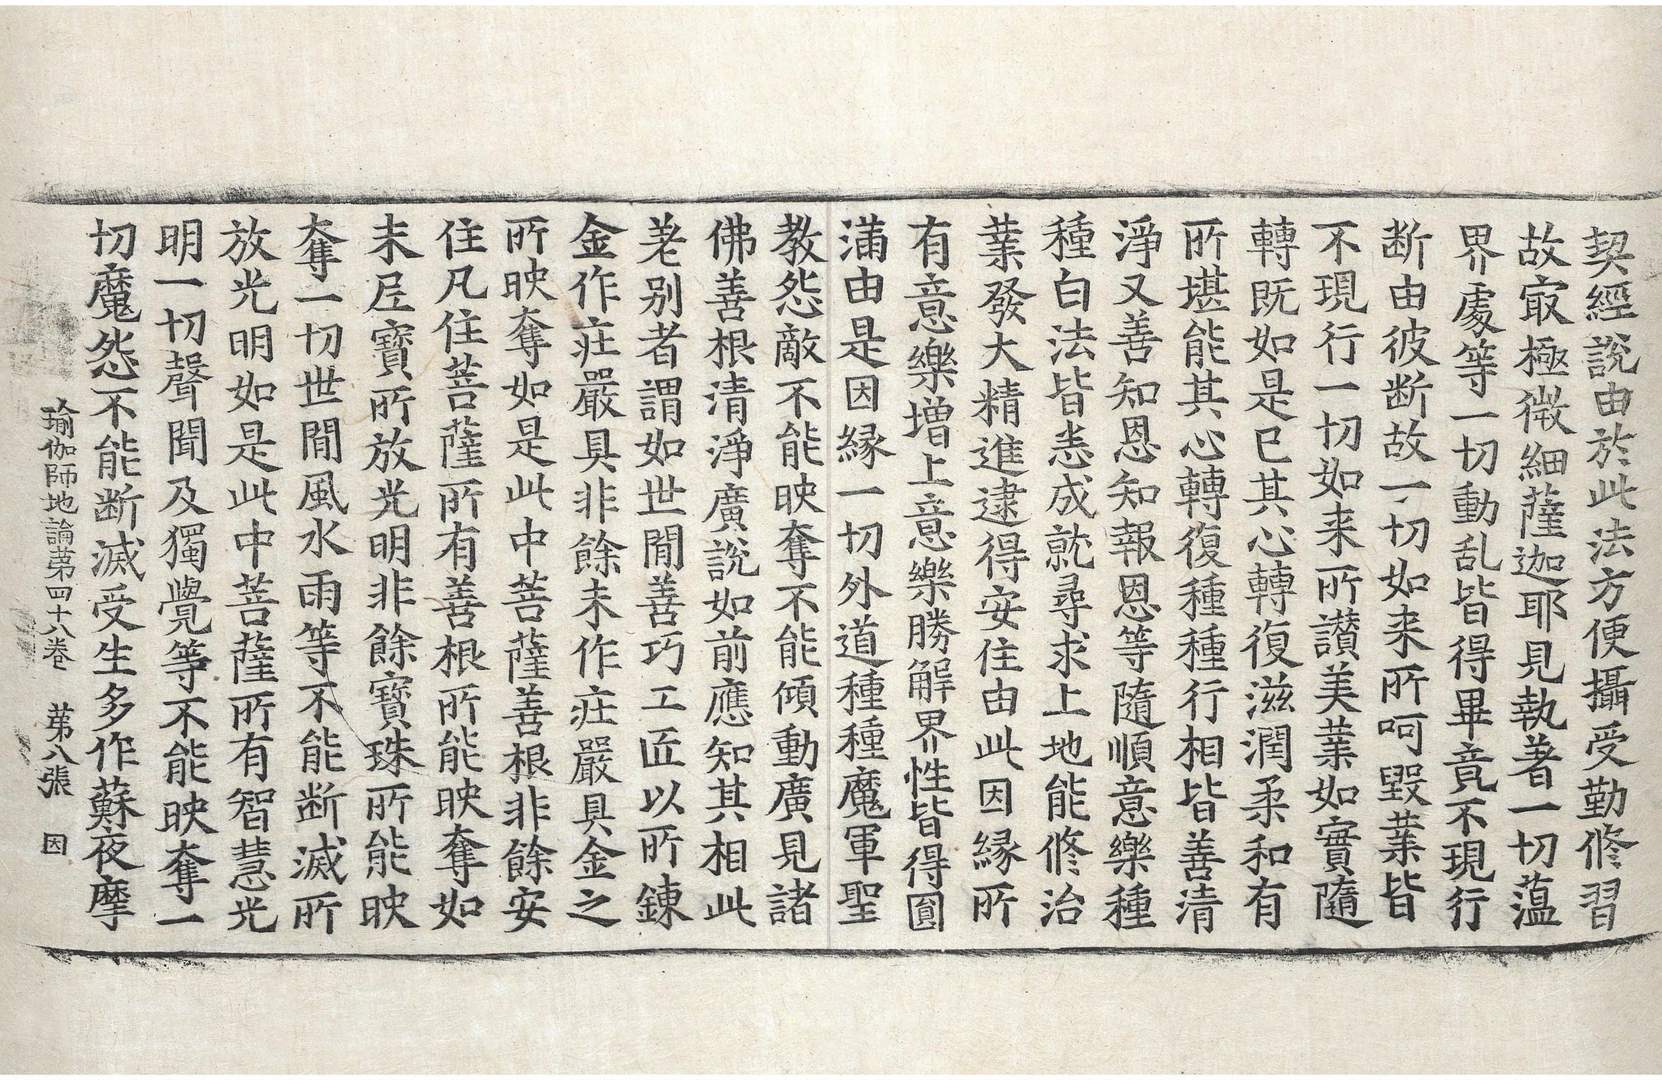 契經說由於此法方便攝受勤修習
故㝡極微細薩迦耶見執著一切薀
界處等一切動乱皆得畢竟不現行
断由彼断故一切如来所呵毀業皆
不現行一切如来所讃美業如實隨
轉既如是已其心轉復滋潤柔和有
所堪能其心轉復種種行相皆善清
淨又善知恩知報恩等隨順意樂種
種白法皆悉成就尋求上地能修治
業發大精進逮得安住由此因縁所
有意樂增上意樂勝解界性皆得圎
滿由是因縁一切外道種種魔軍聖
教怨敵不能映奪不能傾動廣見諸
佛善根清淨廣說如前應知其相此
差别者謂如世閒善巧工匠以所鍊
金作莊嚴具非餘未作莊嚴具金之
所映奪如是此中菩薩善根非餘安
住凡住菩薩所有善根所能映奪如
末尼寶所放光明非餘寶珠所能映
奪一切世閒風水雨等不能断滅所
放光明如是此中菩薩所有智慧光
明一切聲聞及獨覺等不能映奪一
切魔怨不能断滅受生多作蘇夜摩
瑜伽師地論第四十八卷 第八張 因